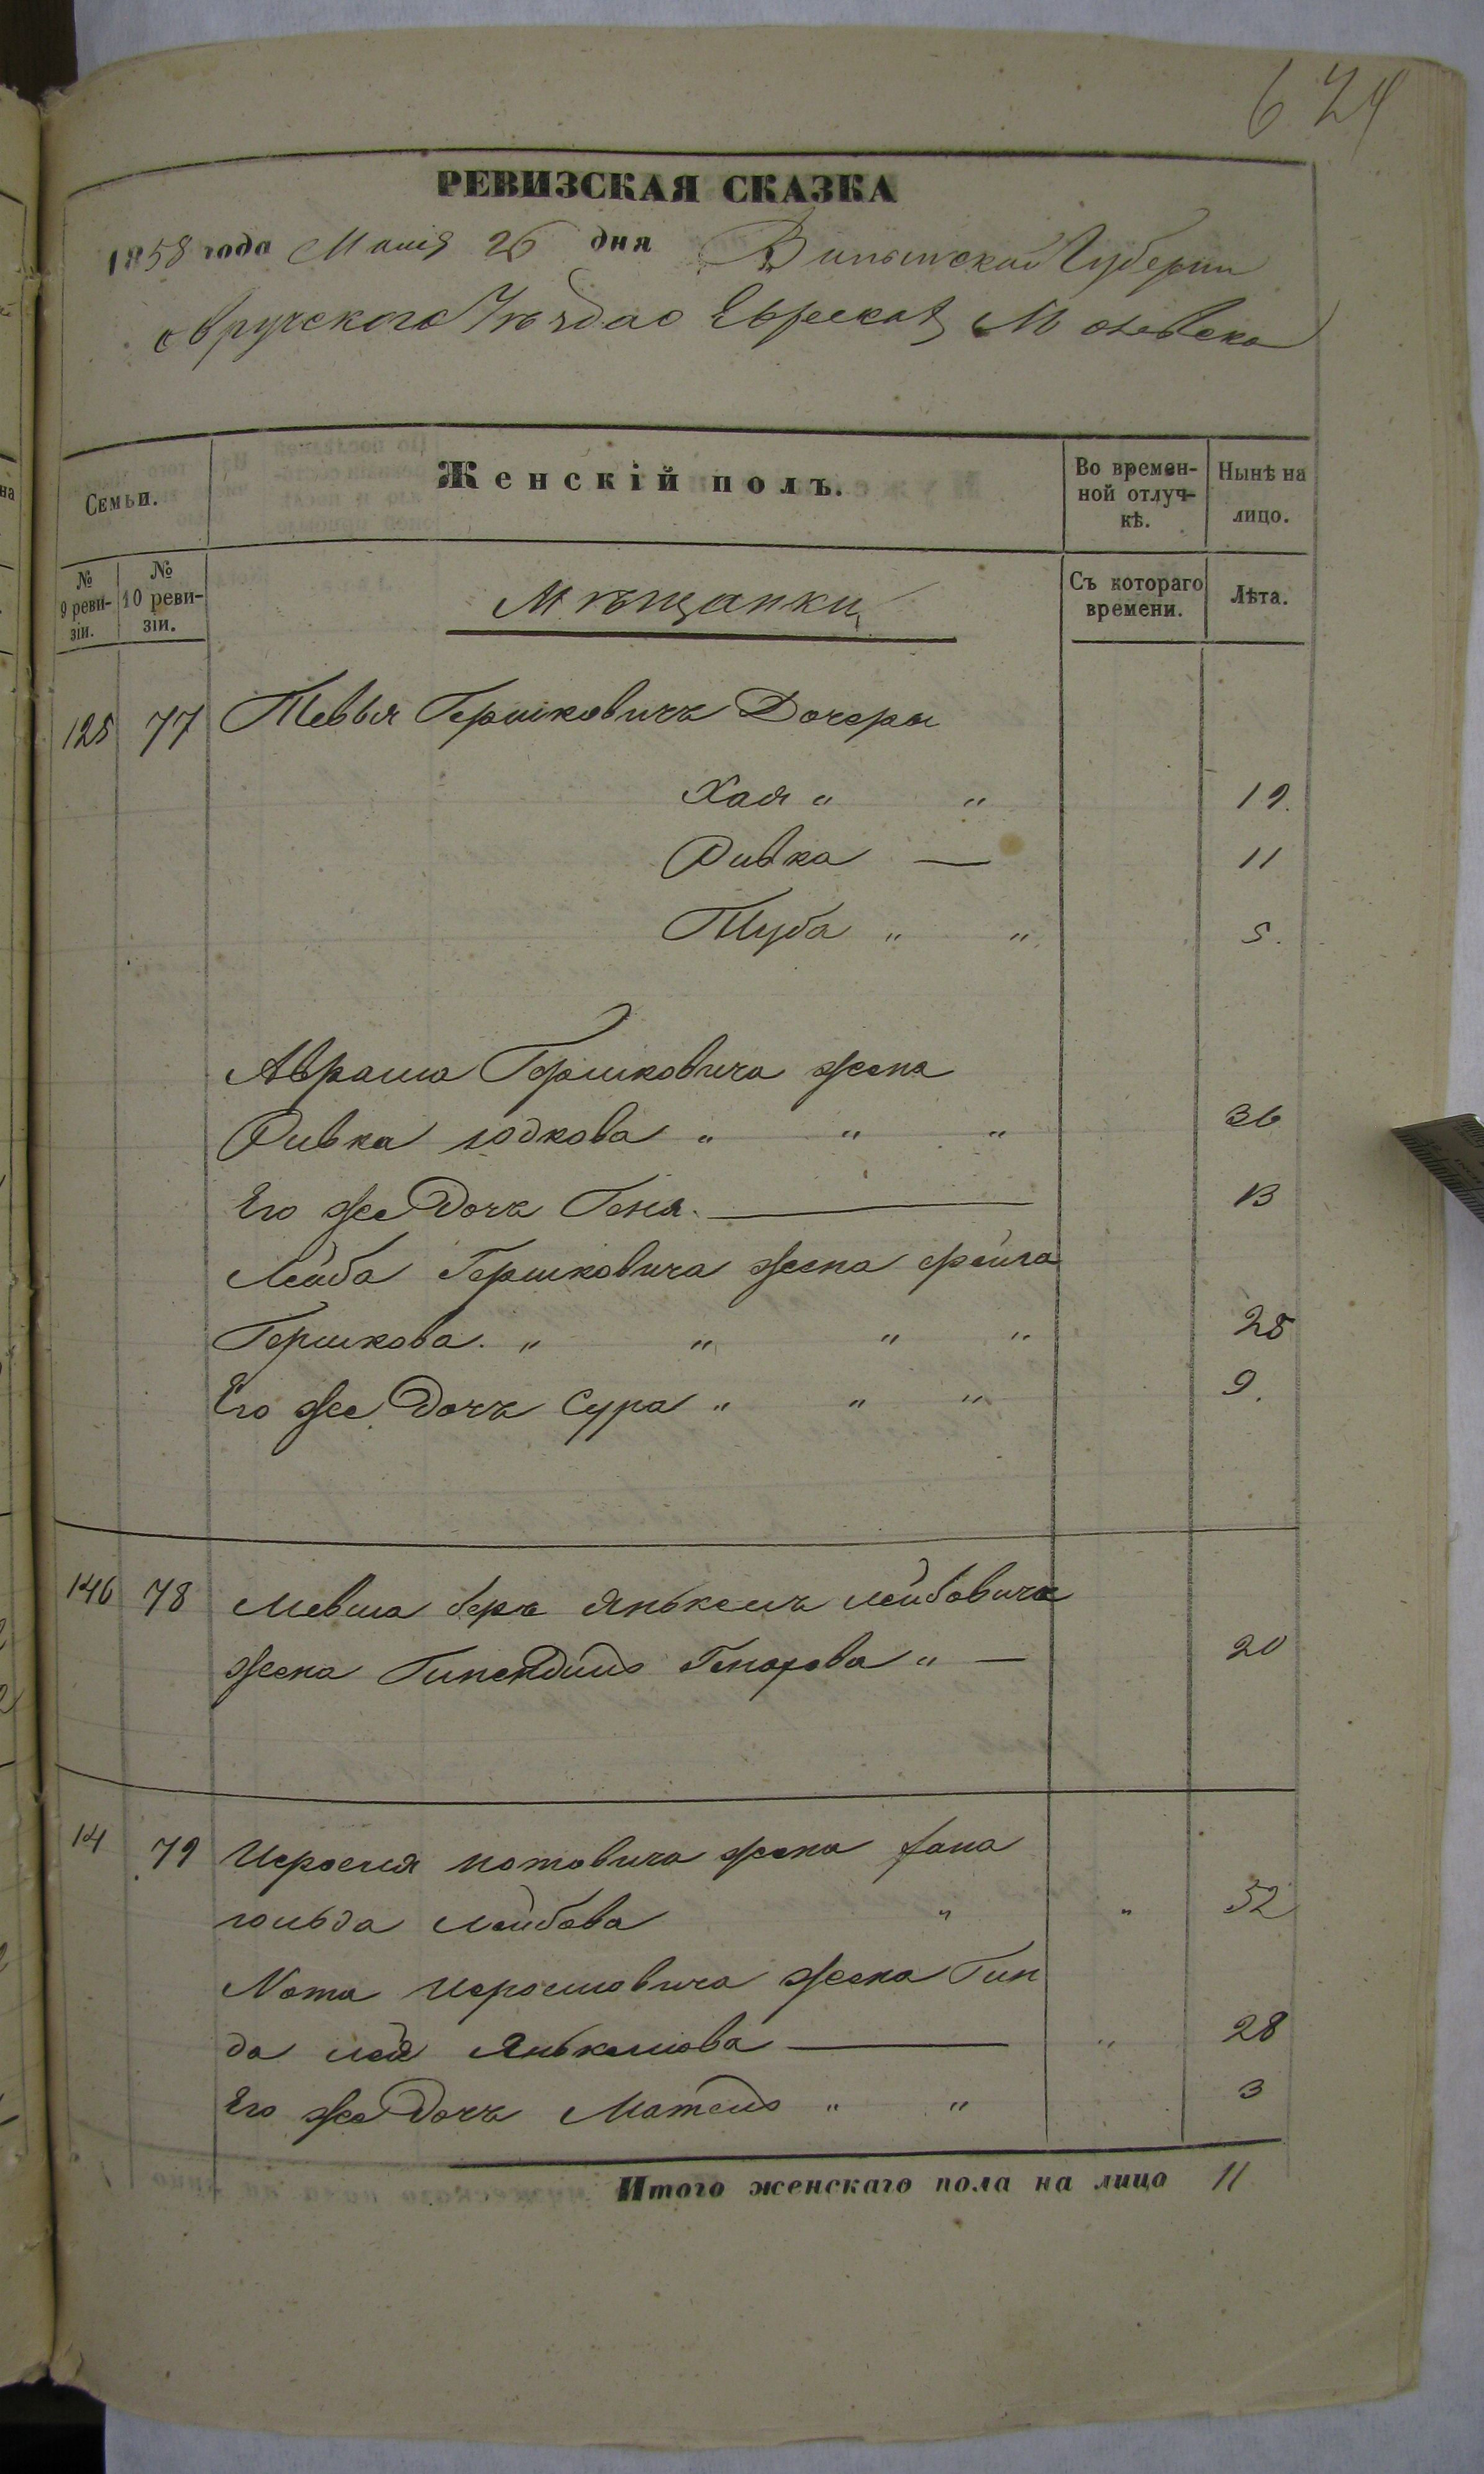 624
РЕВИЗСКАЯ СКАЗКА
1858 года Маия 26 дня Волынской Губернии
овручского Уѣзда о Евреехъ М
Семьи.
Женскій полъ.
Во времен-
ной отлуч-
кѣ.
Нынѣ на
лицо.
№
9 реви-
зіи.
№
10 реви-
зіи.
Мѣщанки
Съ котораго
времени.
Лѣта.
125 77 Тевья Гершковичъ Дочеры
Хая " " 19.
Ривка — 11
Туба " " 5.
Аврама Гершковича жена
Ривка юдкова " " " 36
Его же Дочъ Геня. — 13
Лейба Гершковича жена фейга
Гершкова. " " " " 25
Его же Дочъ Сура " " " 9.
146 78 Мевша беръ Янькель лейбовичъ
жена Генохова " — 20
14 79 Исроеля нотовича жена хана
гольда лейбова " " 52
Нота Исроелювича жена Гин
да лея Янькелюва — " 28
Его же Дочъ Матля " " 3
Итого женскаго пола на лицо 11